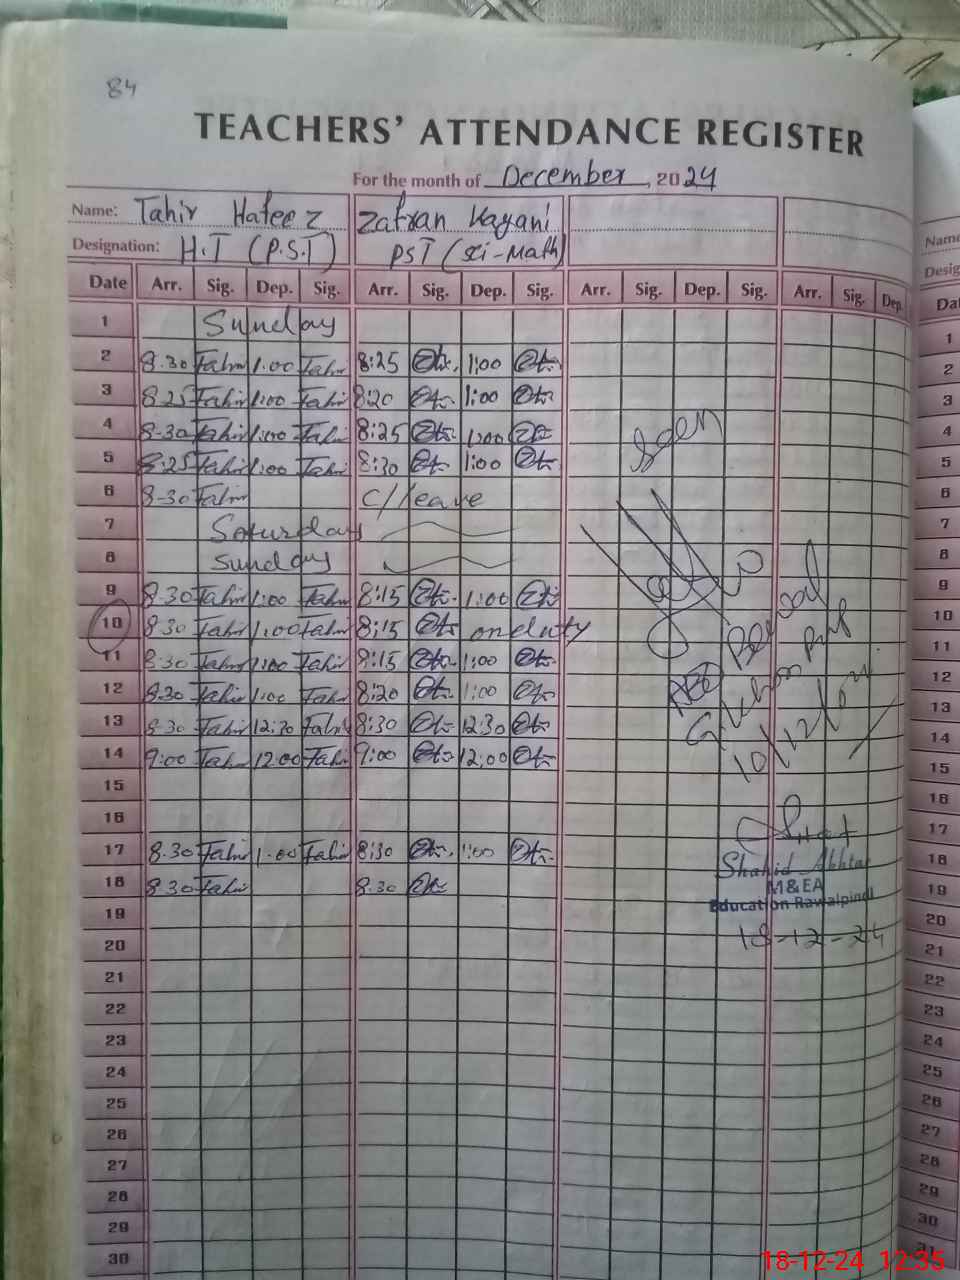 84
TEACHERS' ATTENDANCE REGISTER
For the month of December, 2024
Name: Tahir Hafeez Zafran Kayani
Designation: H.T (P.S.T) PST (Sci-Math)
Date Arr. Sig. Dep. Sig. Arr. Sig. Dep. Sig. Arr. Sig. Dep. Sig. Arr. Sig. Dep.
1 Sunday
2 8.30 Tahir 1.00 Tahir 8:25 1:00
3 8.25 Tahir 1:00 Tahir 8:20 1:00
4 8-30 Tahir 1:00 Tahir 8:25 1:00
5 8:25 Tahir 1:00 Tahir 8:30 1:00
6 8-30 Tahir C/leave
7 Saturday
8 Sunday
9 8.30 Tahir 1:00 Tahir 8:15 1:00
10 8.30 Tahir 1:00 Tahir 8:15 on duty
11 8:30 Tahir 1:00 Tahir 8:15 1:00
12 8.30 Tahir 1:00 Tahir 8:20 1:00
13 8.30 Tahir 12:30 Tahir 8:30 12:30
14 9:00 Tahir 12:00 Tahir 9:00 12:00
15
16
17 8.30 Tahir 1.00 Tahir 8:30 1:00
18 8.30 Tahir 8.30
19
20
21
22
23
24
25
26
27
28
29
30
Seen
AEO
10/12/024
Shahid Akhtar
M&EA
Education Rawalpindi
18-12-24
Name
Desig
Da
1
2
3
4
5
6
7
8
9
10
11
12
13
14
15
16
17
18
19
20
21
22
23
24
25
26
27
28
29
30
18-12-24 12:35